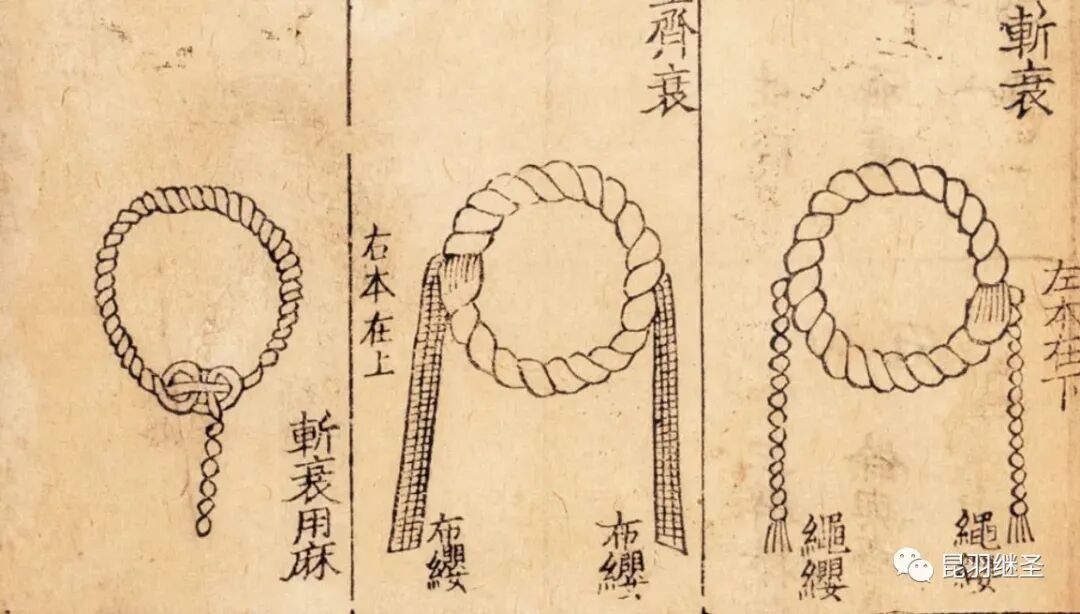 斬衰
左本在下
繩纓
繩纓
齊衰
布纓
布纓
右本在上
斬衰用麻
昆羽继圣